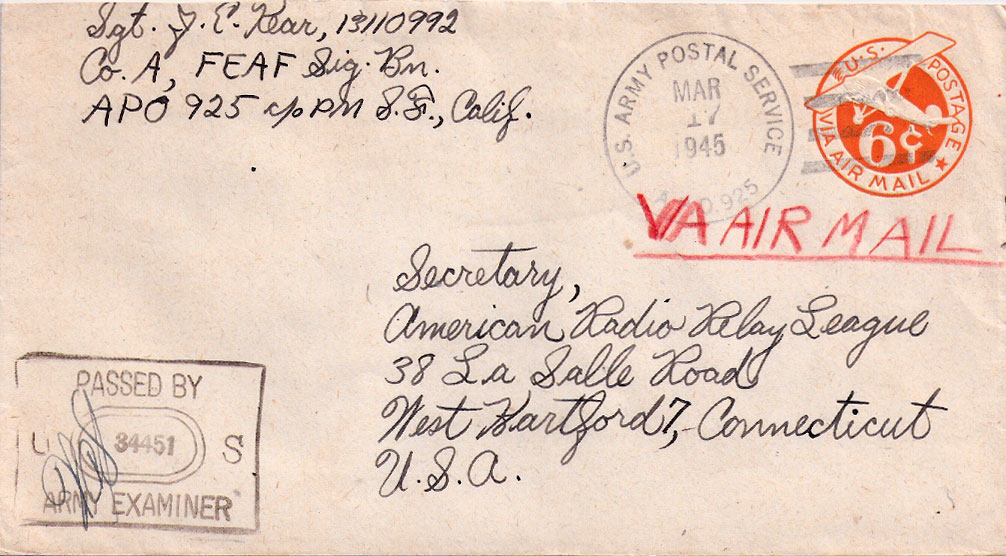 Sgt. J. E. Kear, 13110992
Co. A, FEAF Sig. Bn.
APO 925 c/o PM S.F., Calif.
U.S. ARMY POSTAL SERVICE
MAR
17
1945
A.P.O. 925
U.S. POSTAGE
6¢
VIA AIR MAIL
VIA AIR MAIL
Secretary,
American Radio Relay League
38 La Salle Road
West Hartford 7, Connecticut
U.S.A.
PASSED BY
U 34451 S
ARMY EXAMINER